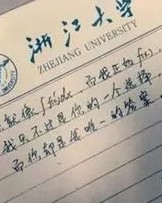 浙江大学
ZHEJIANG UNIVERSITY
就像∫f(x)dx，而我正如f(x)
我只不过是你的一个选择
而你却是我唯一的答案